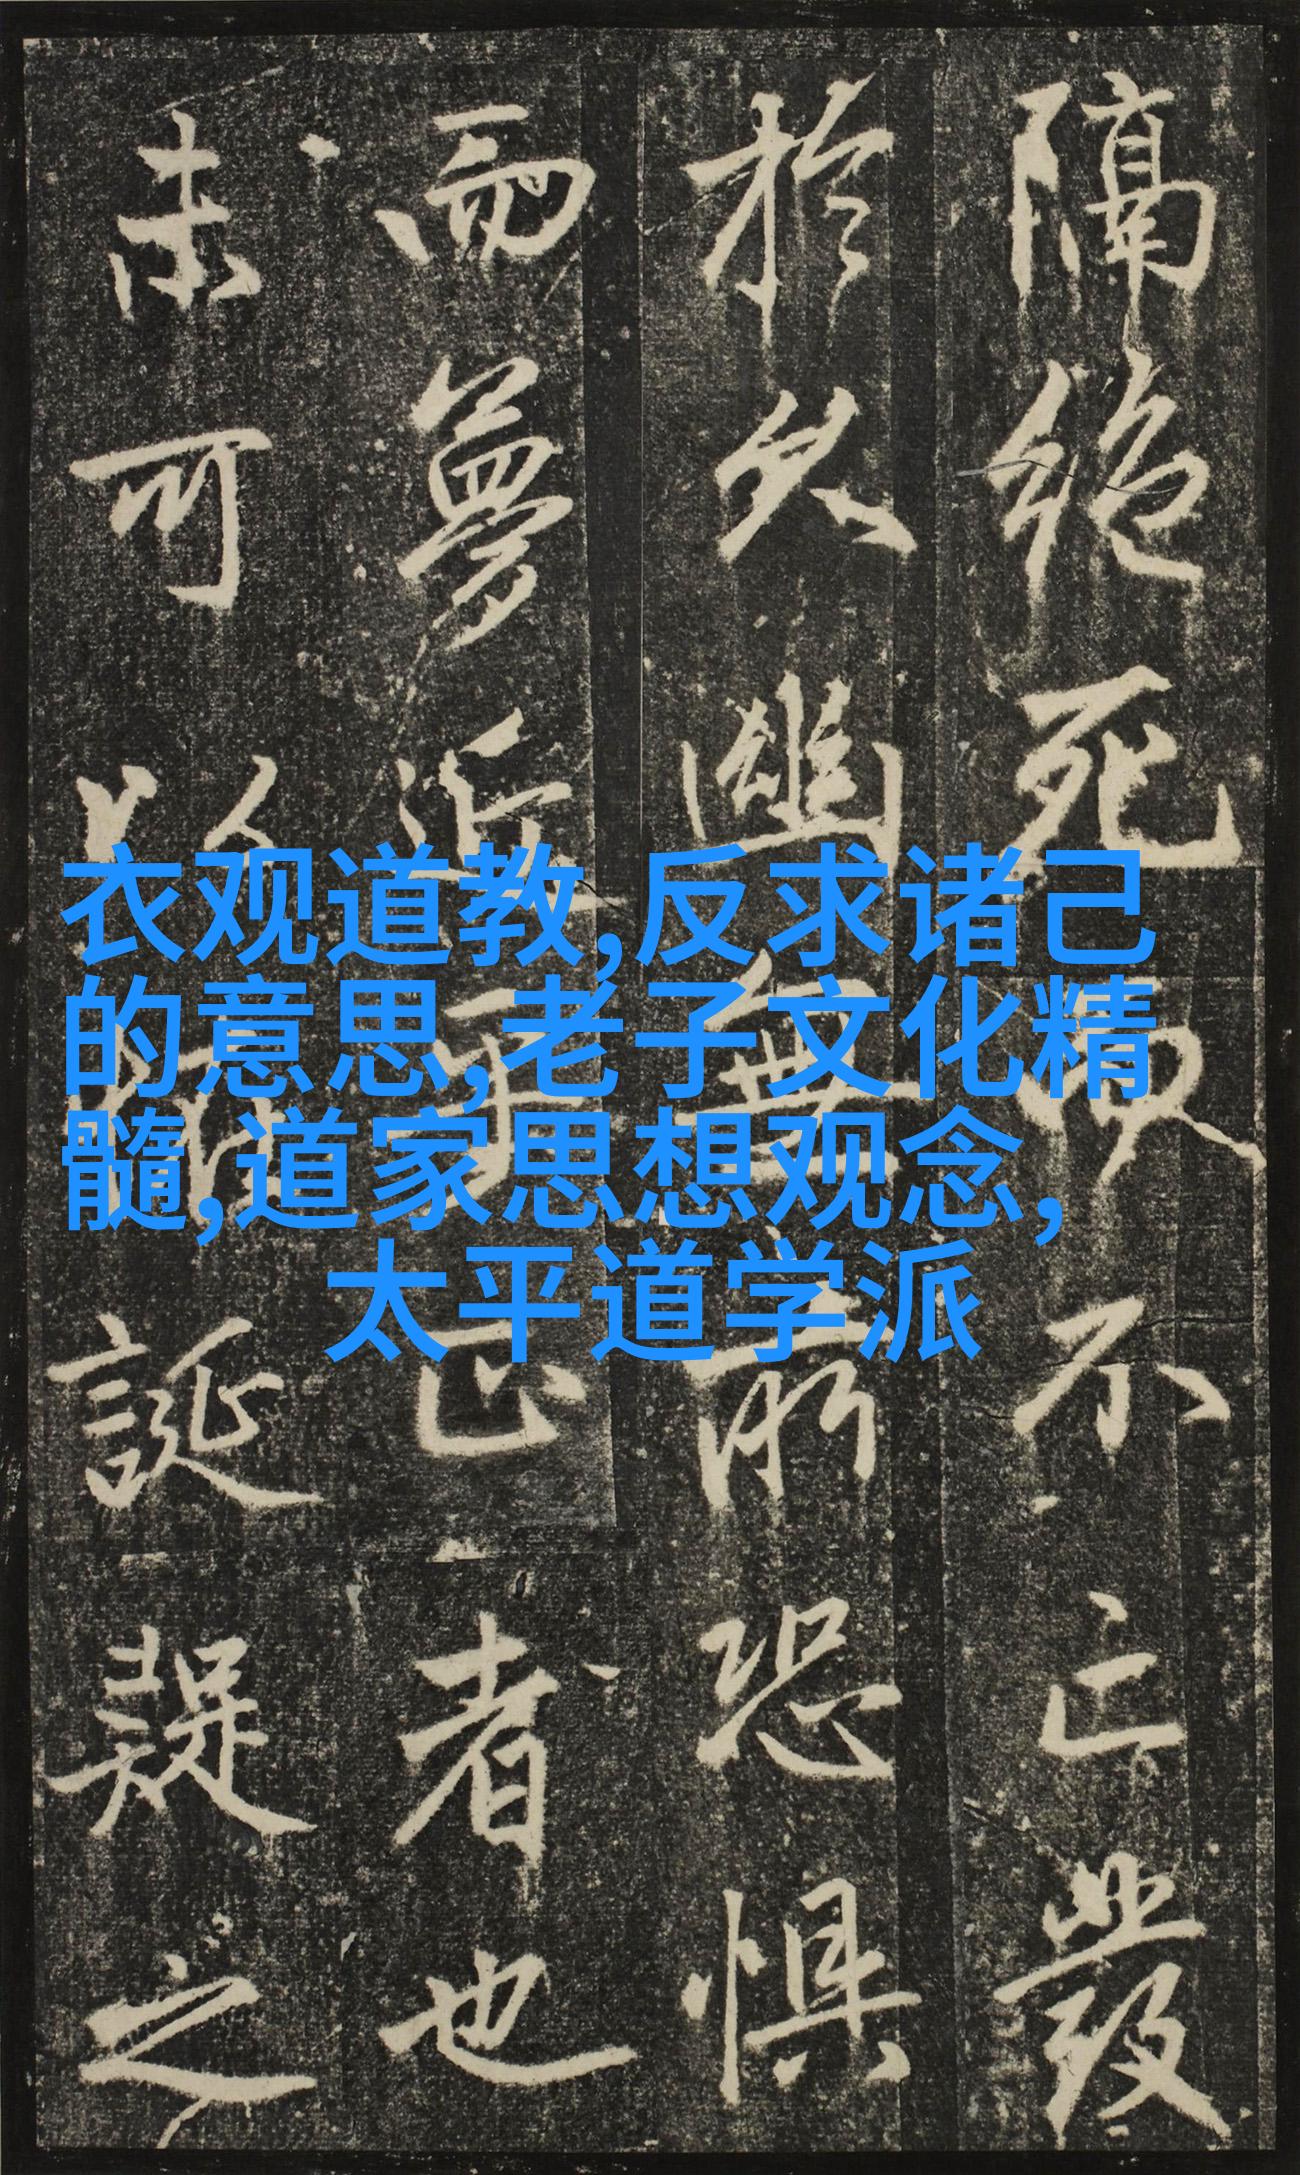 隔絕死不亡發
於久幽無所恐懼
而夢近乎正者也
未可以誕疑之
衣观道教,反求诸己
的意思,老子文化精
髓,道家思想观念,
太平道学派